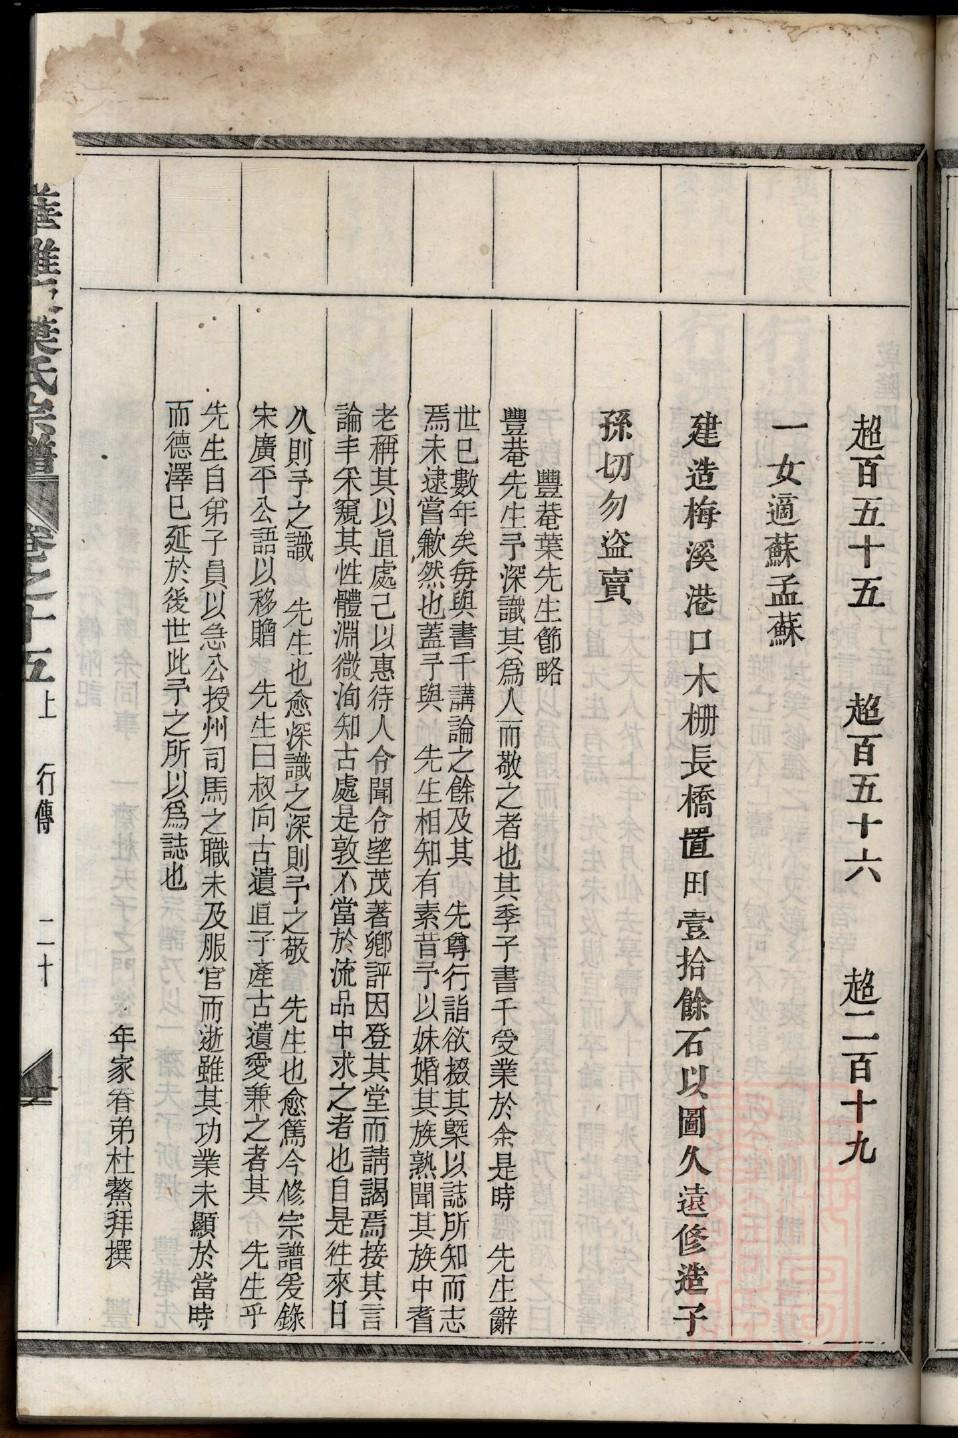 超百五十五 超百五十六 超二百十九
一女適蘇孟蘇
建造梅溪港口木栅長橋置田壹拾餘石以圖久遠修造子
孫切勿盜賣
豐菴葉先生節略
豐菴先生予深識其爲人而敬之者也其季子書千受業於余是時 先生辭
世已數年矣每與書千講論之餘及其 先尊行詣欲掇其槩以誌所知而志
焉未逮嘗歉然也蓋予與 先生相知有素昔予以妹婚其族熟聞其族中耆
老稱其以直處己以惠待人令聞令望茂著鄉評因登其堂而請謁焉接其言
論丰采窺其性體淵微洵知古處是敦不當於流品中求之者也自是徃來日
久則予之識 先生也愈深識之深則予之敬 先生也愈篤今修宗譜爰錄
宋廣平公語以移贈 先生曰叔向古遺直子產古遺愛兼之者其 先生乎
先生自弟子員以急公授州司馬之職未及服官而逝雖其功業未顯於當時
而德澤已延於後世此予之所以爲誌也
年家眷弟杜鰲拜撰
葉氏宗譜 卷之十五上 行傳 二十